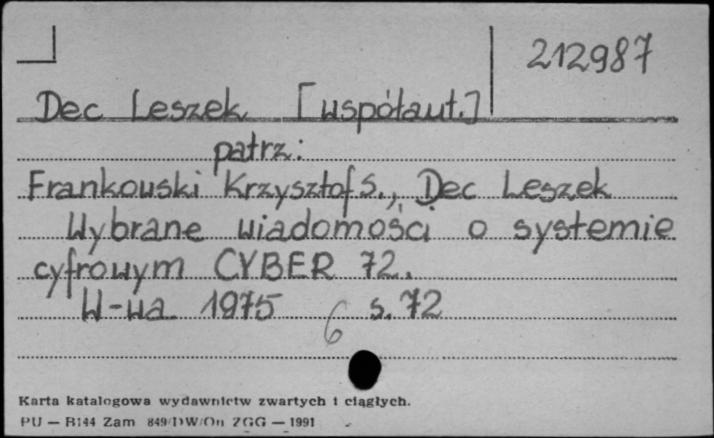 212987
Dec Leszek [współaut.]
patrz:
Frankowski Krzysztof S., Dec Leszek
Wybrane wiadomości o systemie
cyfrowym CYBER 72.
W-wa 1975 s. 72
6
Karta katalogowa wydawnictw zwartych i ciągłych.
PU — B144 Zam 849/DW/On ZGG — 1991